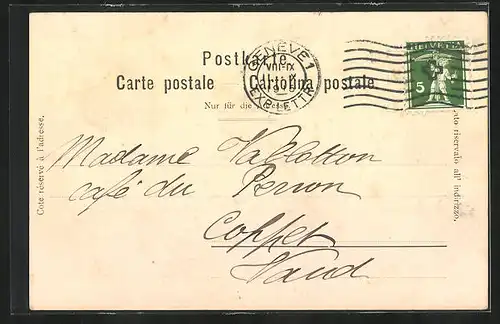 Postkarte
Carte postale Cartolina postale
Nur für die Adresse
GENÈVE 1
VIII-IX
EXP. LETTR.
HELVETIA
5
Côté réservé à l'adresse.
Lato riservato all' indirizzo.
Madame Vallotton
café du Perron
Coppet
Vaud